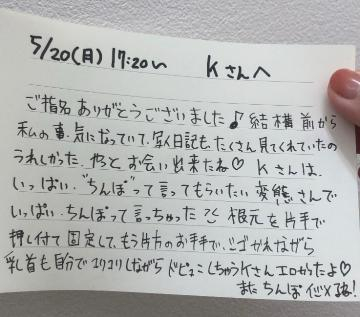 5/20(月) 17:20〜 Kさんへ
ご指名ありがとうございました♪ 結構前から
私の事、気になっていて、写メ日記も、たくさん見てくれていたの
うれしかった、やっとお会い出来たね♡ Kさんは、
いっぱい、"ちんぽ"って言ってもらいたい変態さんで
いっぱい、ちんぽって言っちゃった 根元を片手で
押し付て固定して、もう片方のお手手で、しごかれながら
乳首も自分でコリコリしながらドピュッこしちゃうKさんエロかったよ♡
またちんぽ するね!